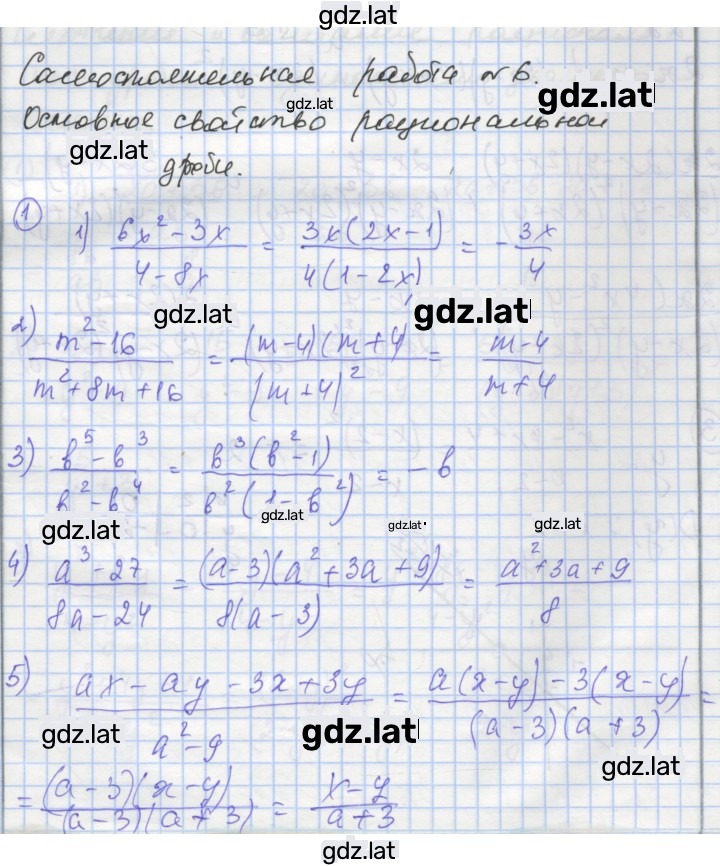 gdz.lat
Самостоятельная работа №6.
gdz.lat
gdz.lat
Основное свойство рациональной
gdz.lat
дроби.
① 1) (6x² - 3x)/(4 - 8x) = 3x(2x - 1)/4(1 - 2x) = - 3x/4
gdz.lat
gdz.lat
2) (m² - 16)/(m² + 8m + 16) = (m - 4)(m + 4)/(m + 4)² = (m - 4)/(m + 4)
3) (b⁵ - b³)/(b² - b⁴) = b³(b² - 1)/b²(1 - b²) = - b
gdz.lat
gdz.lat
gdz.lat
gdz.lat
4) (a³ - 27)/(8a - 24) = (a - 3)(a² + 3a + 9)/8(a - 3) = (a² + 3a + 9)/8
5) (ax - ay - 3x + 3y)/(a² - 9) = (a(x - y) - 3(x - y))/(a - 3)(a + 3) =
gdz.lat
gdz.lat
gdz.lat
= (a - 3)(x - y)/(a - 3)(a + 3) = (x - y)/(a + 3)
gdz.lat